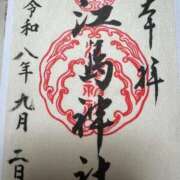 奉拝
江島神社
令和八年九月二日